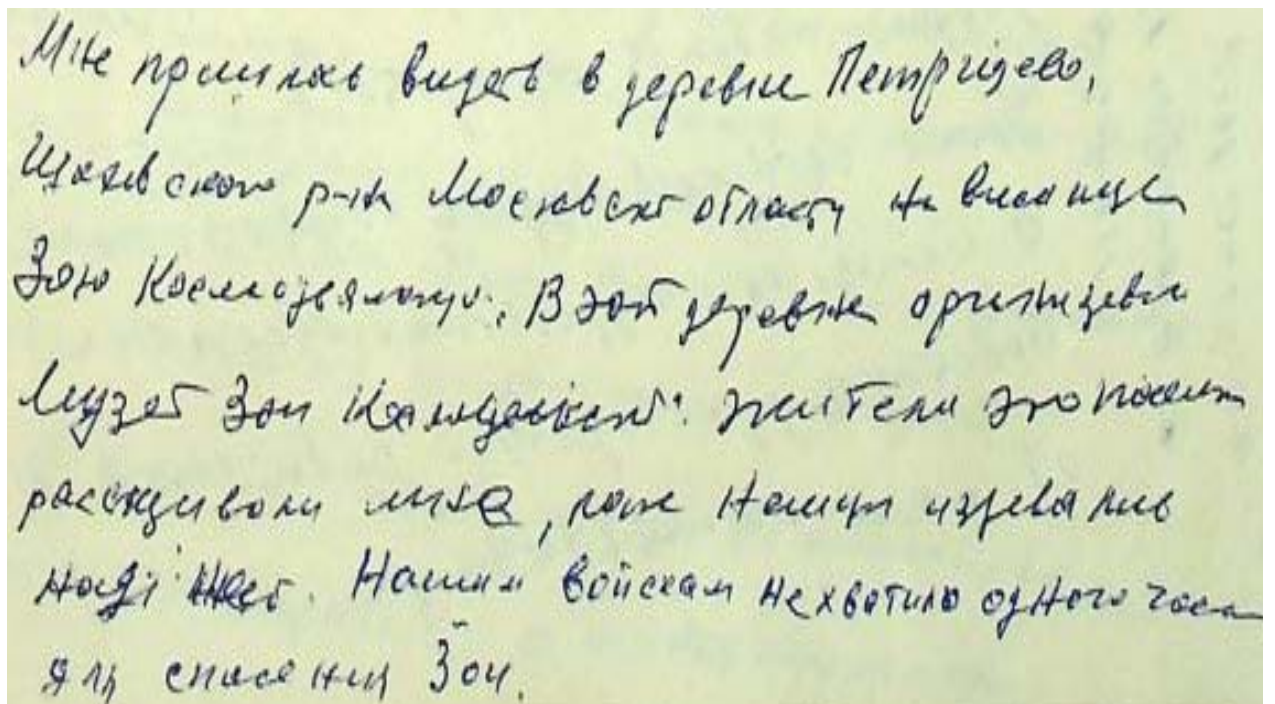 Мне пришлось видеть в деревне Петрищево,
р-на Московской области на виселице
Зою Космодемьянскую. В этой деревне организован
Музей Зои Космодемьянской. Жители этой
рассказывали мне, как немцы издевались
над ней. Нашим войскам не хватило одного часа
для спасения Зои.